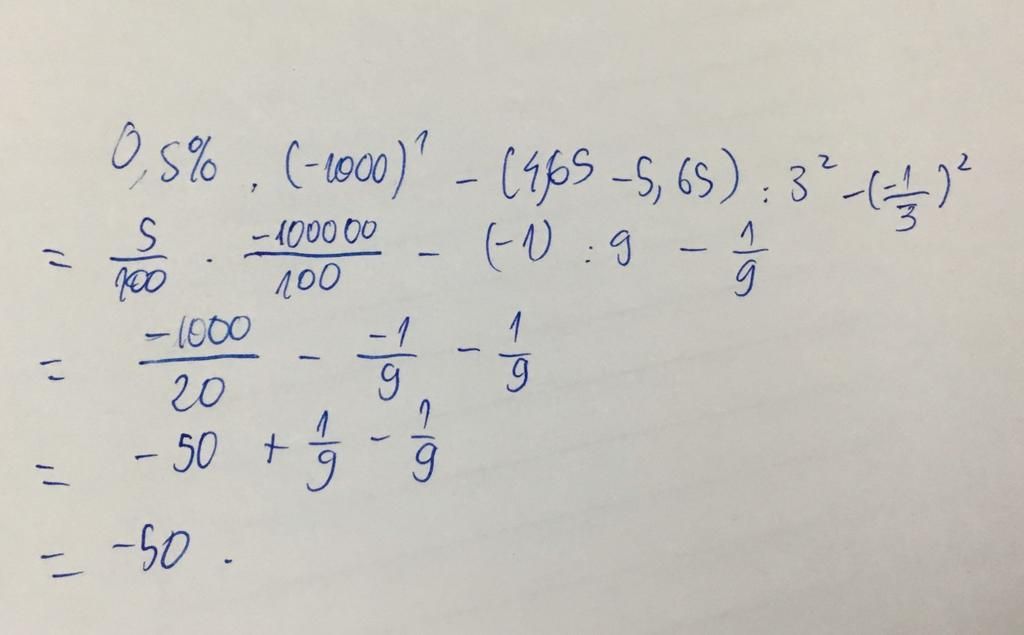 0,5% . (-1000)¹ - (4,65 - 5,65) : 3² - (-1/3)²
= 5/100 . -100000/100 - (-1) : 9 - 1/9
= -1000/20 - -1/9 - 1/9
= -50 + 1/9 - 1/9
= -50 .